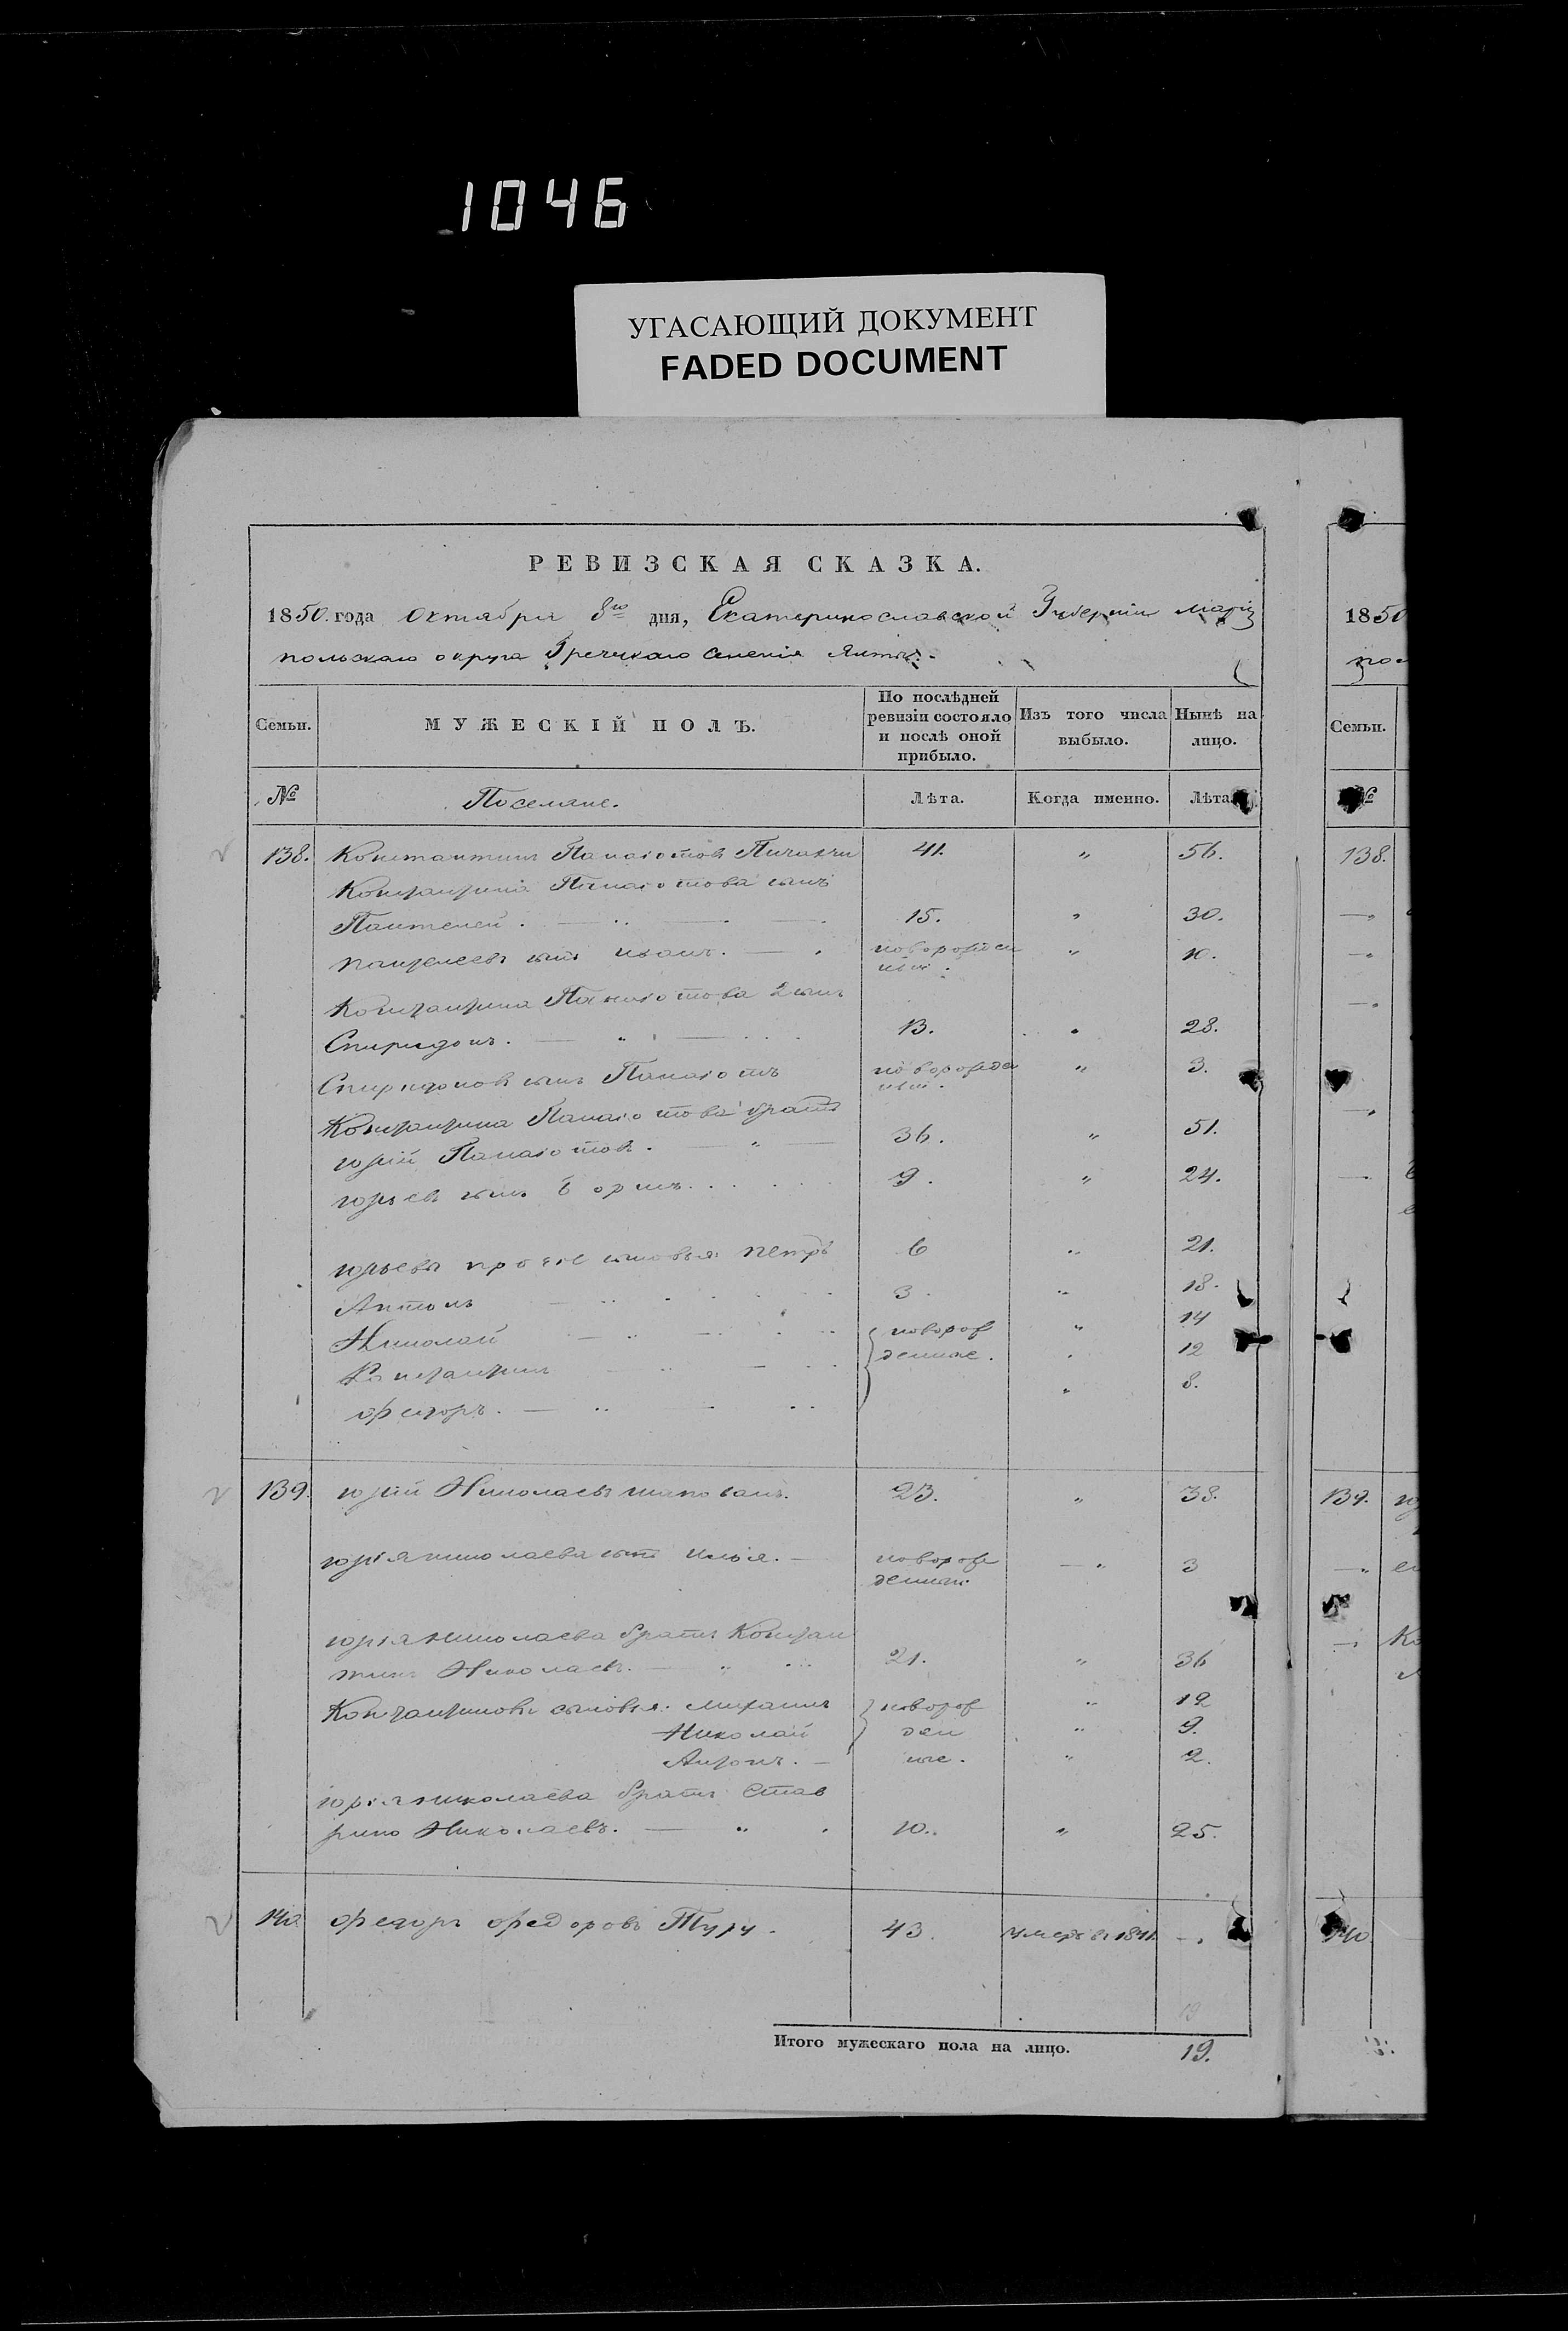 1046
УГАСАЮЩИЙ ДОКУМЕНТ
FADED DOCUMENT
РЕВИЗСКАЯ СКАЗКА.
1850. года Октября 8го дня, Екатеринославской Губерніи Маріу
польскаго округа Греческаго Селенія Ялты.
Семьи.
МУЖЕСКІЙ ПОЛЪ.
По послѣдней
ревизіи состояло
и послѣ оной
прибыло.
Изъ того числа
выбыло.
Нынѣ на
лицо.
№
Поселяне.
Лѣта.
Когда именно.
Лѣта
138. Константинъ Панаіотовъ 41. " 56.
Константина Панаіотова сынъ
Пантелей. 15. " 30.
Пантелеевъ сынъ Иванъ. новорожден
ный. " 10.
Константина Панаіотова 2 сынъ
Спиридонъ. 13. " 28.
Спиридоновъ сынъ Панаіотъ новорожде
ный. " 3.
Константина Панаіотова братъ
Юрій Панаіотовъ. 36. " 51.
Юрьевъ сынъ 9. " 24.
Юрьевы сыновья Петръ 6 " 21.
Антонъ 3. " 18.
Николай новорож " 14
Константинъ денные. " 12
Федоръ. " 8.
139. Юрій Николаевъ 23. " 38.
Юрія Николаева сынъ Илья. новорож
денный. " 3
Юрія Николаева братъ Констан
тинъ Николаевъ. 21. " 36
Константиновы сыновья: Михаилъ новорож " 12
Николай ден " 9.
Антонъ. ные. " 2.
Юрія Николаева братъ Став
рино Николаевъ. 10. " 25.
140 Федоръ Федоровъ 43. умеръ в. 1841.
Итого мужескаго пола на лицо. 19.
1850
Семьи.
№
138.
139.
140